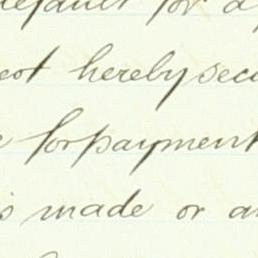 default for a
hereby secu
for payment
is made or a